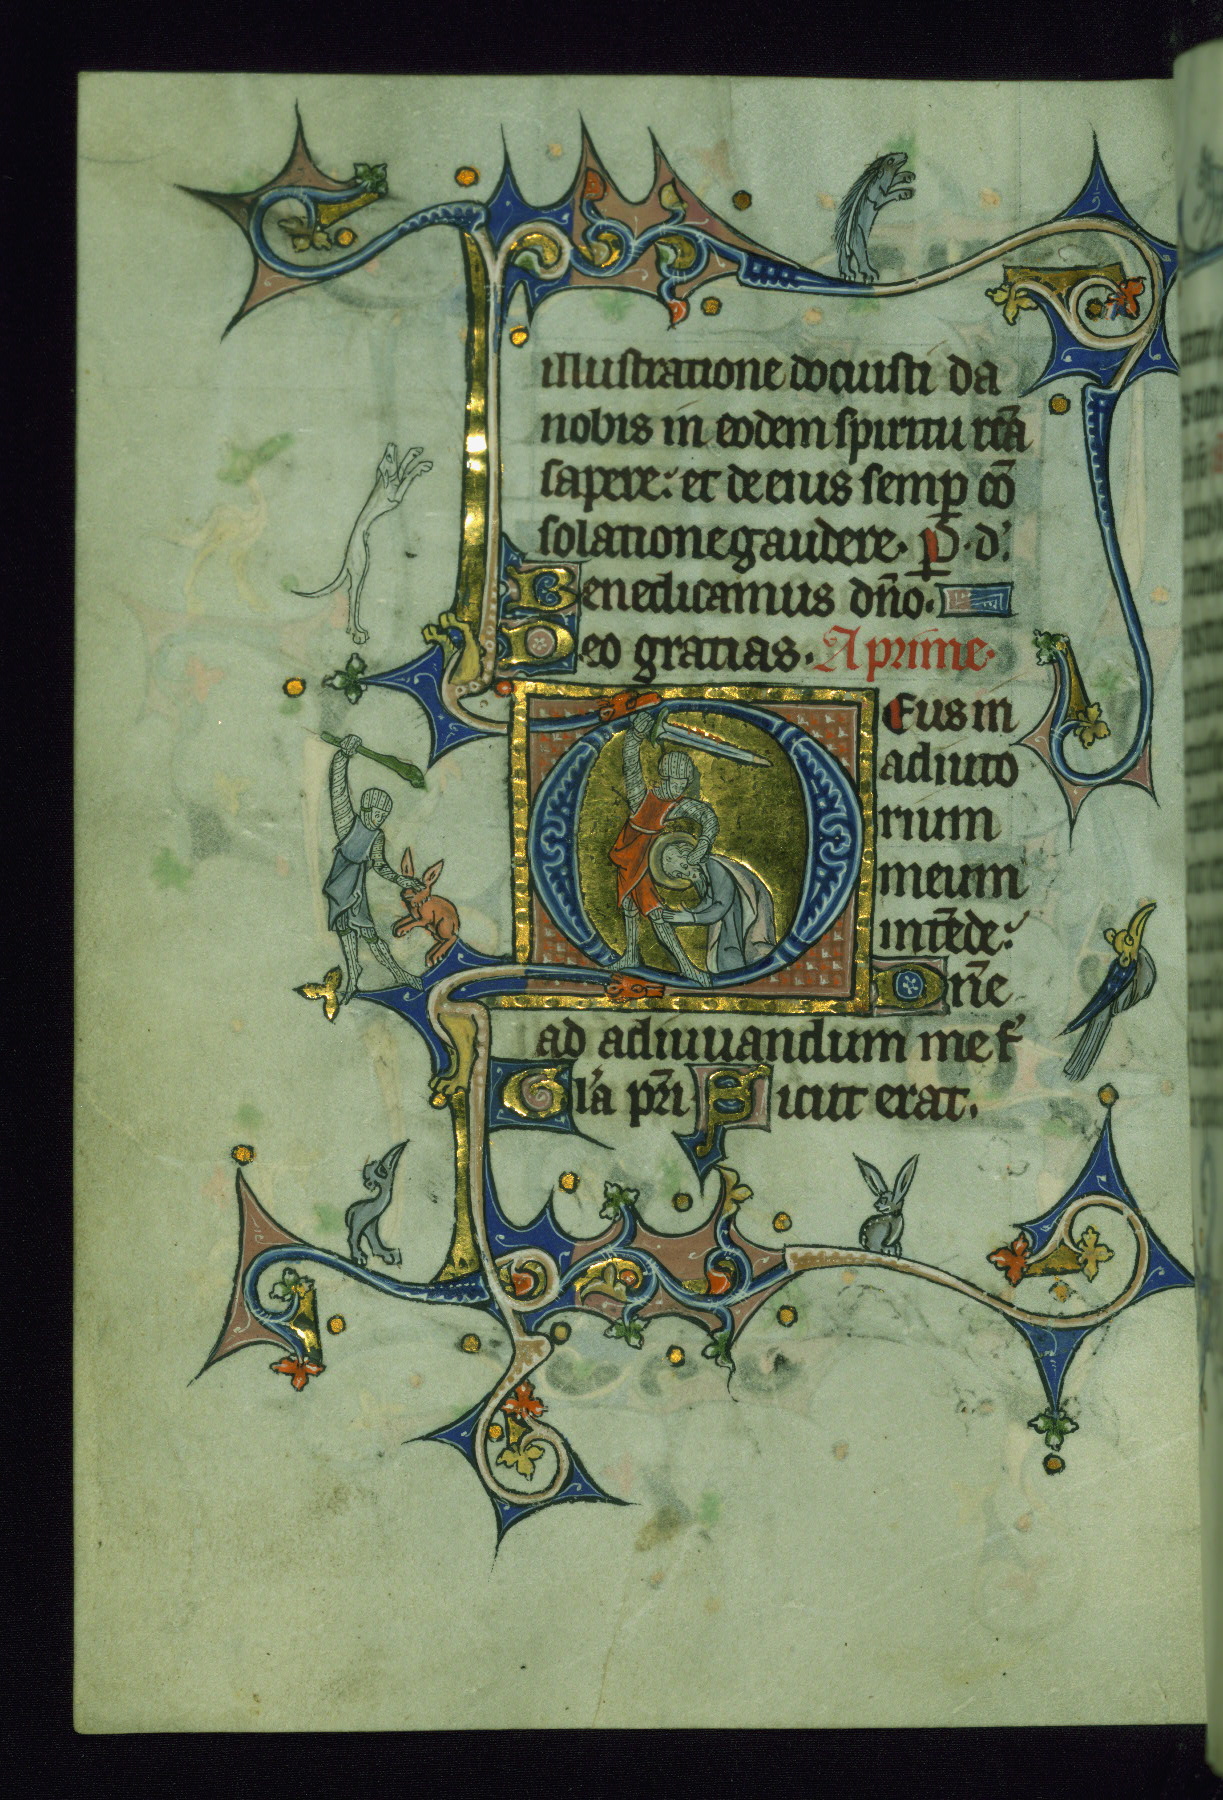 illustratione docuisti da
nobis in eodem spiritu rc̄a
sapere: et de eius semp̱ co̅
solatione gaudere. p̱. d'.
Benedicamus dn̄o.
Deo gratias. A prime.
Deus in
adiuto
rium
meum
intēde:
Dn̄e
ad adiuuandum me f'
Gl'a pr̄i Sicut erat.